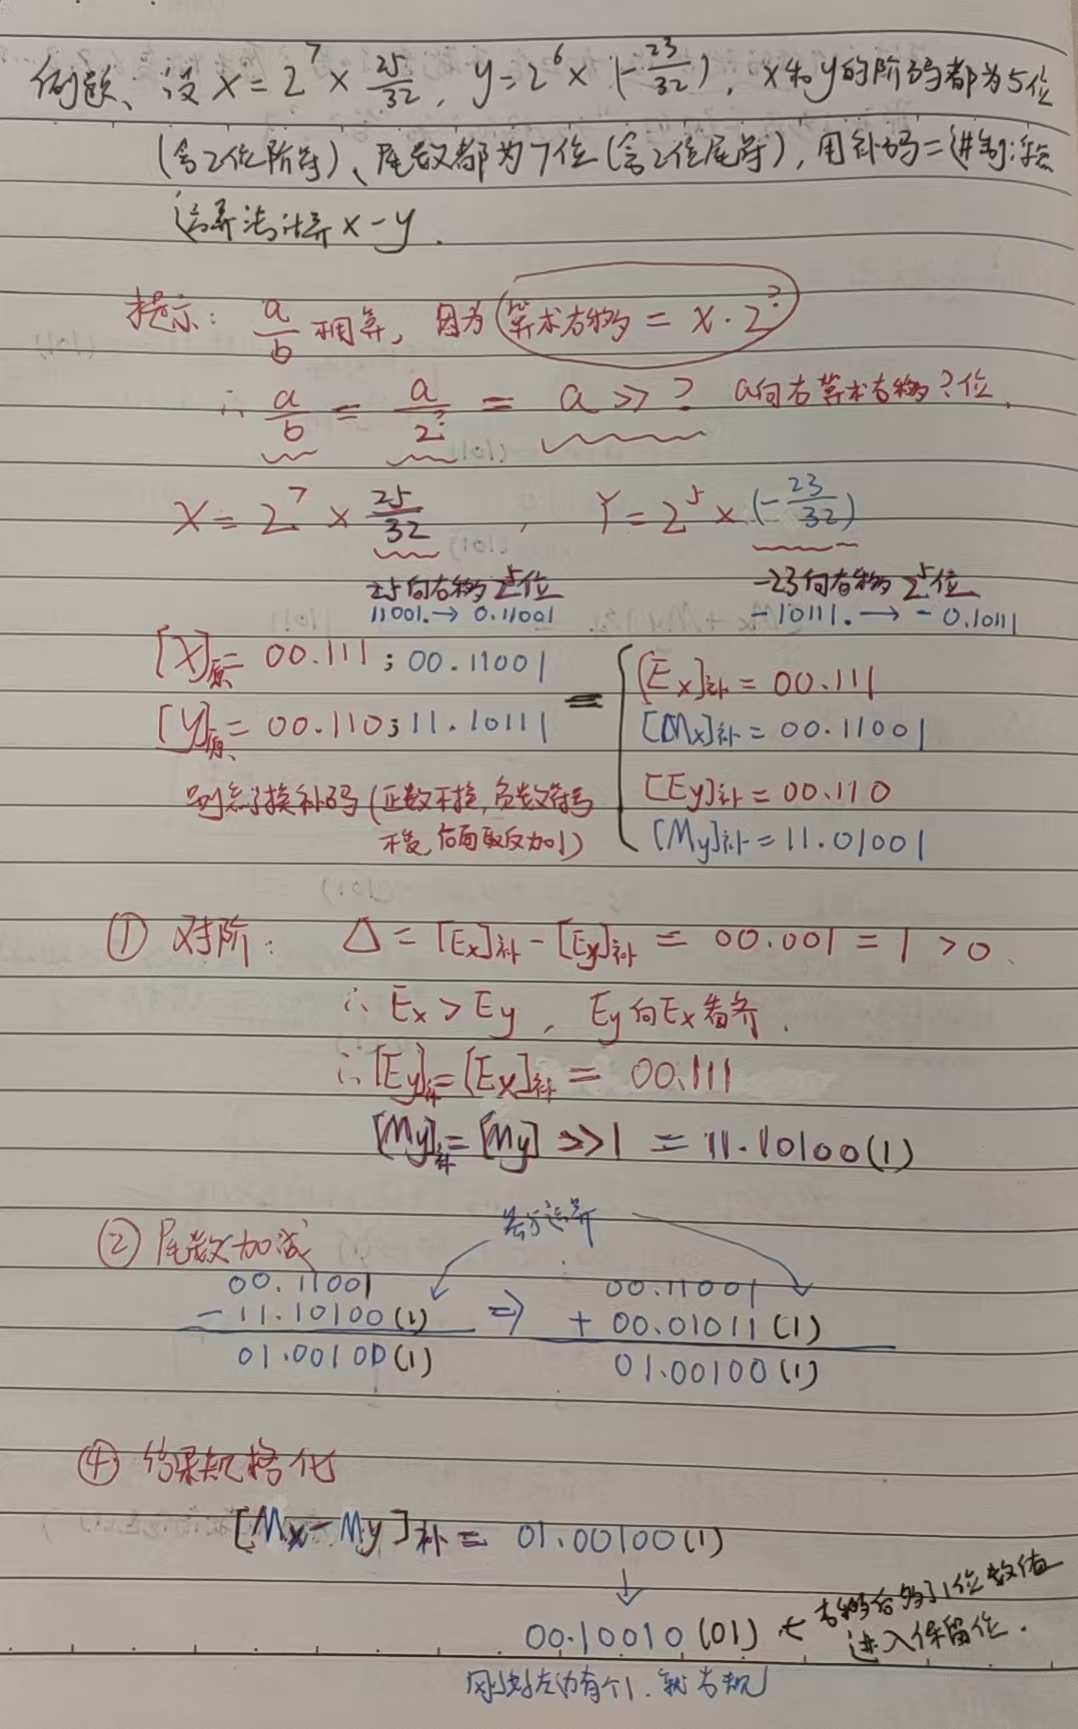 例题、设 X = 2^7 × 25/32, y = 2^6 × (-23/32), x和y的阶码都为5位
(含2位阶符)、尾数都为7位(含2位尾符), 用补码二进制浮点
运算法计算 x - y.
提示: a/b 相算, 因为(算术右移 = X · 2^?)
∴ a/b = a/2^? = a >> ? a向右算术右移?位
X = 2^7 × 25/32 , Y = 2^5 × (-23/32)
25向右移 5位 -23向右移 5位
11001. → 0.11001 -10111. → -0.10111
[X]原 = 00.111 ; 00.11001
[y]原 = 00.110 ; 11.10111
别忘了换补码 (正数不换, 负数符号
不变, 后面取反加1)
= { [Ex]补 = 00.111
[Mx]补 = 00.11001
[Ey]补 = 00.110
[My]补 = 11.01001
① 对阶: Δ = [Ex]补 - [Ey]补 = 00.001 = 1 > 0
∴ Ex > Ey , Ey向Ex看齐.
∴ [Ey]补 = [Ex]补 = 00.111
[My]补 = [My] >> 1 = 11.10100(1)
② 尾数加减
参与运算
00.11001 00.11001
- 11.10100(1) ⇒ + 00.01011(1)
01.00100(1) 01.00100(1)
④ 结果规格化
[Mx - My]补 = 01.00100(1)
↓
00.10010(01) ← 右移后多了1位数值
进入保留位.
刚好左边有个1. 就右规